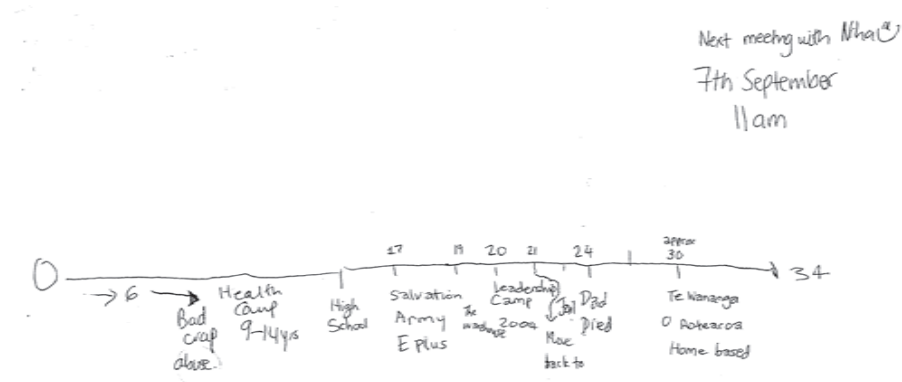 Next meeting with Nha
7th September
11am
17 19 20 21 24 approx 30
0 34
→ 6 →
Bad
crap
abuse.
Health
Camp
9-14yrs
High
School
Salvation
Army
E plus
The
warehouse
Leadership
Camp
2004
Jail
Move
back to
Dad
Died
Te Wananga
O Aotearoa
Home based